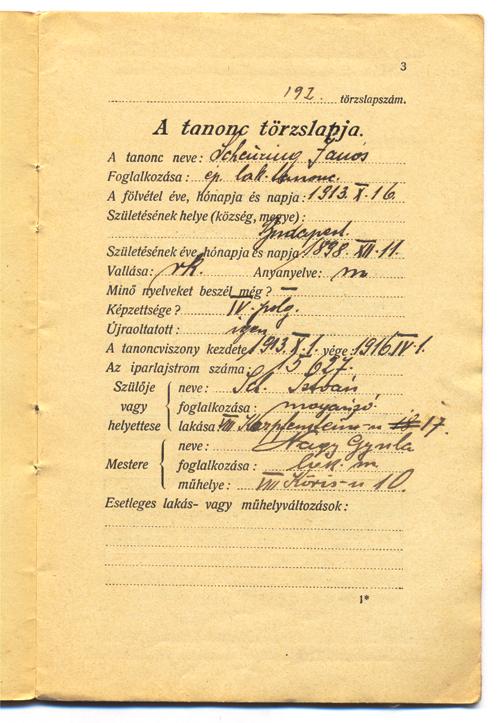 3
192. törzslapszám.
A tanonc törzslapja.
A tanonc neve: Scheüring János
Foglalkozása: ép. lak. tanonc.
A fölvétel éve, hónapja és napja: 1913. X. 16.
Születésének helye (község, megye):
Budapest
Születésének éve, hónapja és napja 1898. XII. 11.
Vallása: rk. Anyanyelve: m
Minő nyelveket beszél még? —
Képzettsége? IV. polg.
Újraoltatott: igen
A tanoncviszony kezdete 1913. X. 1. vége: 1916 IV. 1.
Az iparlajstrom száma: 15627.
Szülője vagy helyettese
neve: Sch. István
foglalkozása:
lakása: VIII. 17.
Mestere
neve: Nagy Gyula
foglalkozása: m
műhelye: VIII Kőris-u 10.
Esetleges lakás- vagy műhelyváltozások:
1*